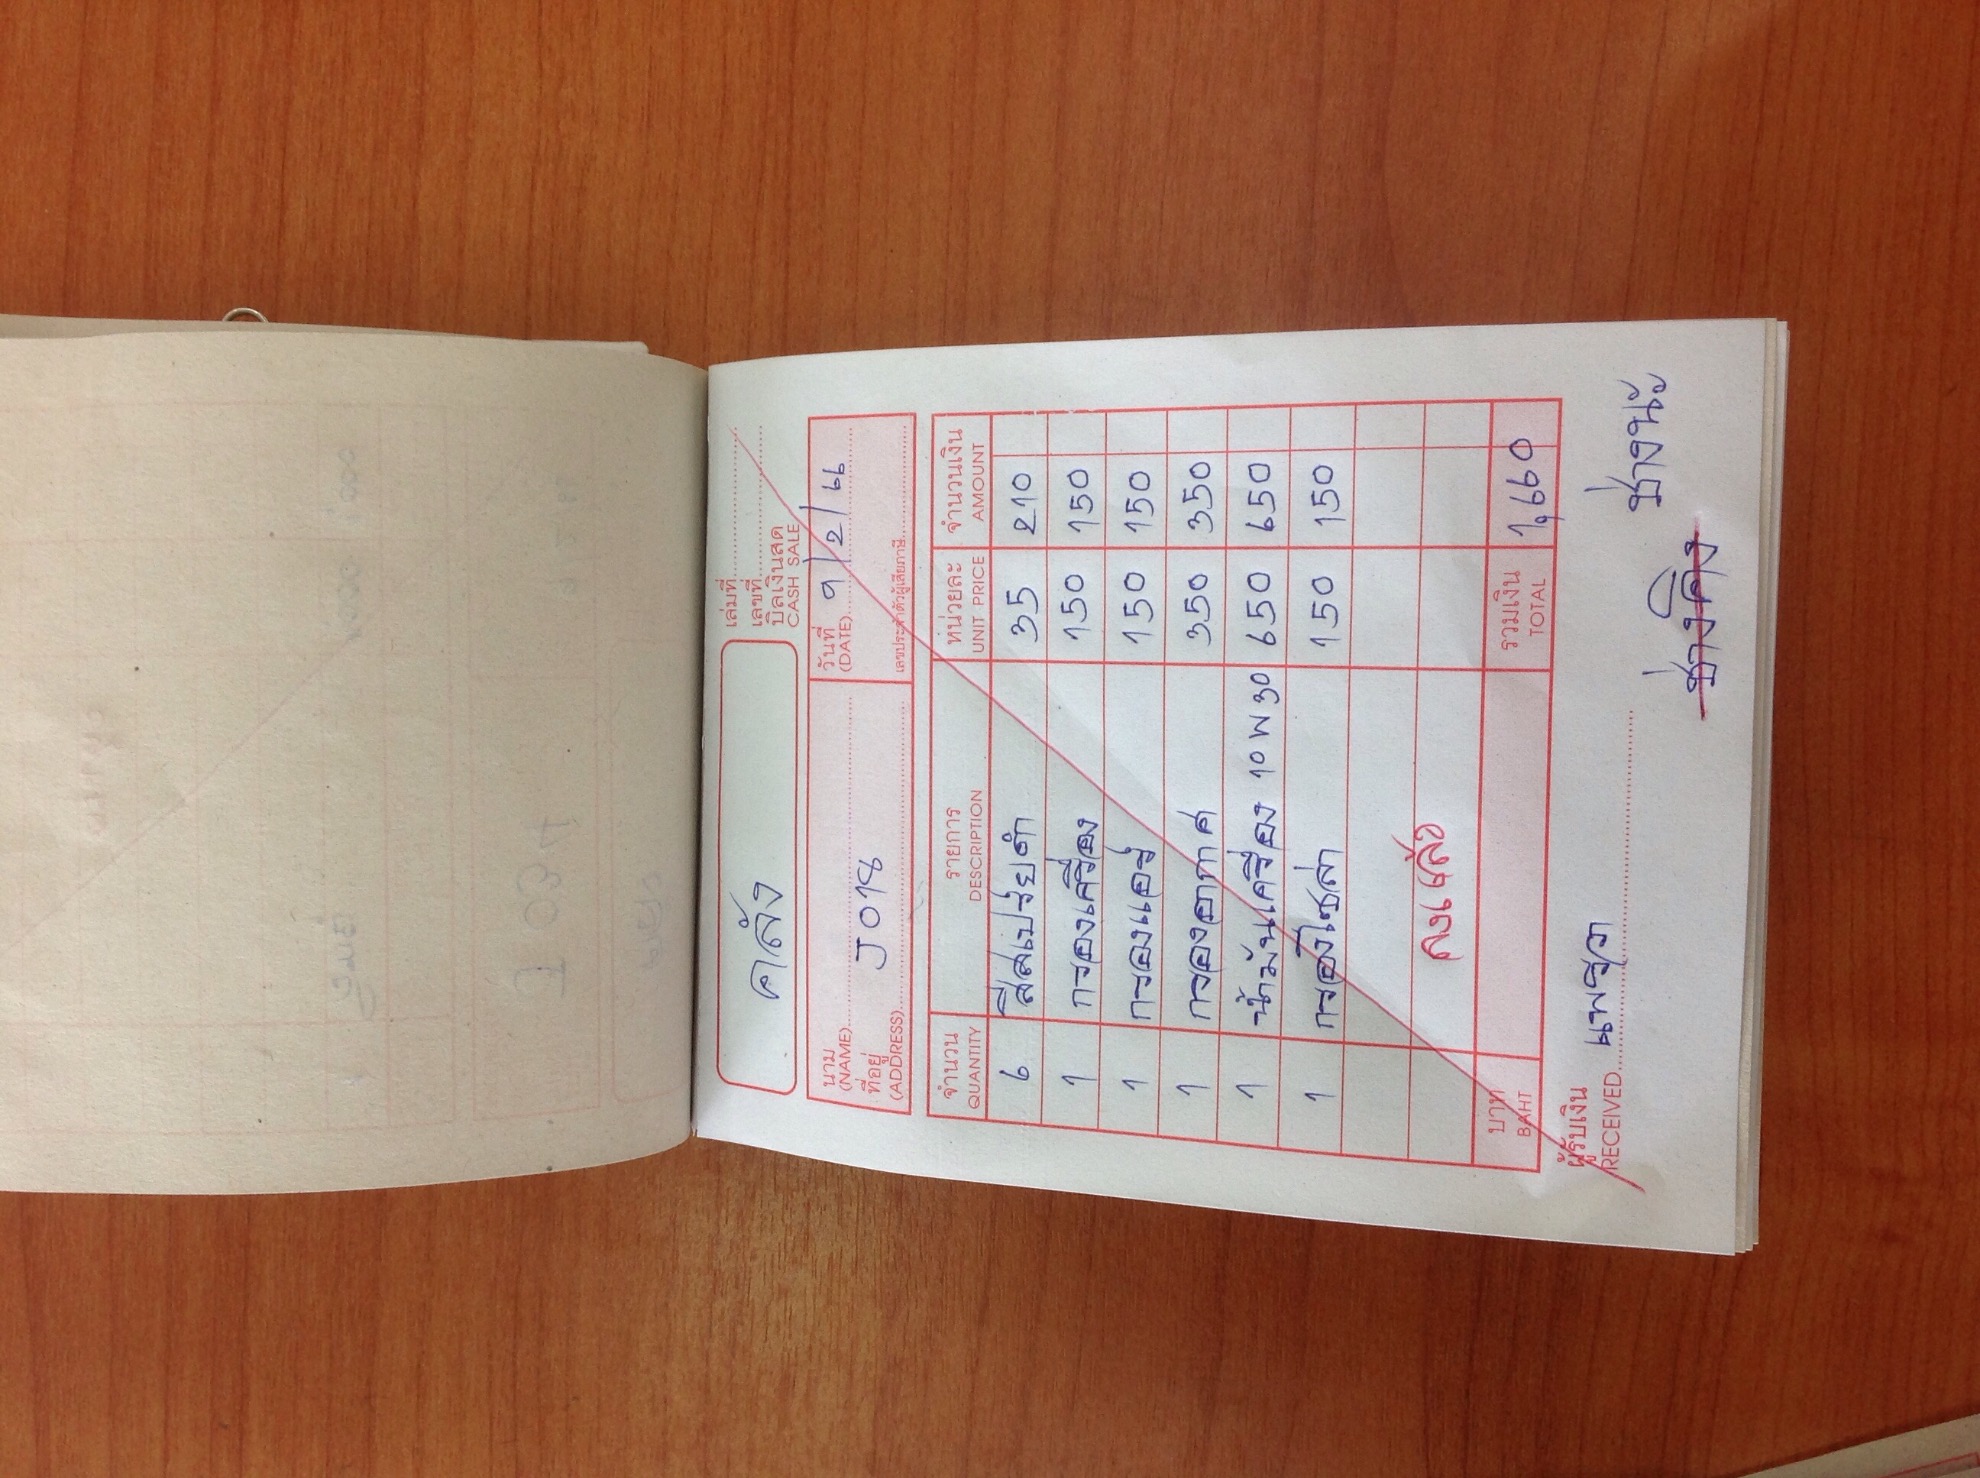 คลัง
เล่มที่
เลขที่
บิลเงินสด
CASH SALE
นาม
(NAME)
วันที่ 9/2/66
(DATE)
ที่อยู่ J018
(ADDRESS)
เลขประจำตัวผู้เสียภาษี
จำนวน รายการ หน่วยละ จำนวนเงิน
QUANTITY DESCRIPTION UNIT PRICE AMOUNT
6 สีสเปรย์ดำ 35 210
1 กรองเครื่อง 150 150
1 กรองแอร์ 150 150
1 กรองอากาศ 350 350
1 น้ำมันเครื่อง 10W30 650 650
1 กรองโซล่า 150 150
ลงแล้ว
บาท รวมเงิน 1,660
BAHT TOTAL
ผู้รับเงิน
RECEIVED แพรวา
ช่าง ช่าง